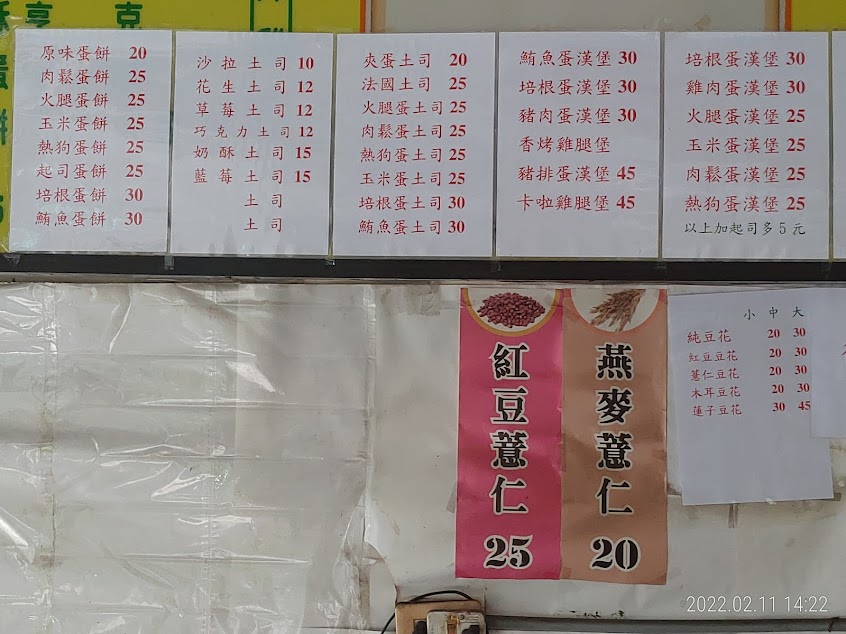 亨 克
原味蛋餅 20
肉鬆蛋餅 25
火腿蛋餅 25
玉米蛋餅 25
熱狗蛋餅 25
起司蛋餅 25
培根蛋餅 30
鮪魚蛋餅 30
沙拉土司 10
花生土司 12
草莓土司 12
巧克力土司 12
奶酥土司 15
藍莓土司 15
土司
土司
夾蛋土司 20
法國土司 25
火腿蛋土司 25
肉鬆蛋土司 25
熱狗蛋土司 25
玉米蛋土司 25
培根蛋土司 30
鮪魚蛋土司 30
鮪魚蛋漢堡 30
培根蛋漢堡 30
豬肉蛋漢堡 30
香烤雞腿堡
豬排蛋漢堡 45
卡啦雞腿堡 45
培根蛋漢堡 30
雞肉蛋漢堡 30
火腿蛋漢堡 25
玉米蛋漢堡 25
肉鬆蛋漢堡 25
熱狗蛋漢堡 25
以上加起司多5元
紅豆薏仁 25
燕麥薏仁 20
小 中 大
純豆花 20 30
紅豆豆花 20 30
薏仁豆花 20 30
木耳豆花 20 30
蓮子豆花 30 45
2022.02.11 14:22